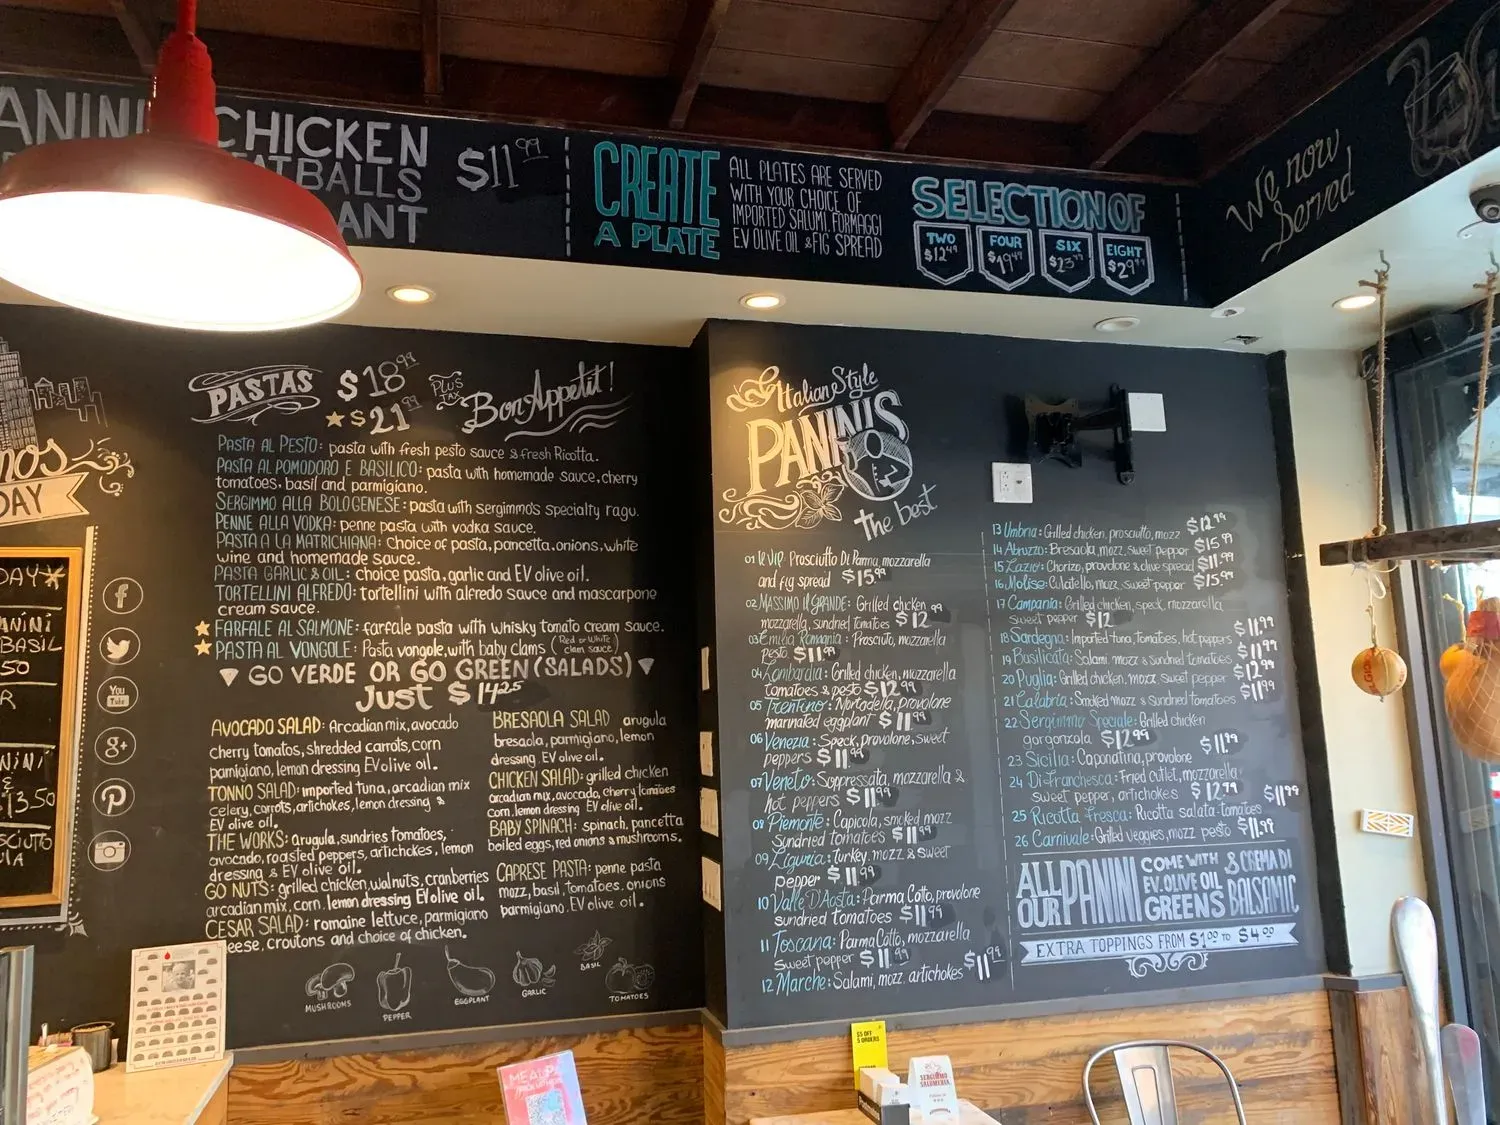 ANINI
CHICKEN
TBALLS
ANT
$11.99
CREATE
A PLATE
ALL PLATES ARE SERVED
WITH YOUR CHOICE OF
IMPORTED SALUMI, FORMAGGI
EV OLIVE OIL & FIG SPREAD
SELECTION OF
TWO $12.49
FOUR $19.49
SIX $23.49
EIGHT $29.49
We now
Served
MOS
DAY
DAY
ANINI
BASIL
50
R
NINI
&
13.50
SCIUTTO
ULA
You Tube
g+
PASTAS $18.99 PLUS TAX Bon Appetit!
★$21.99
PASTA AL PESTO: pasta with fresh pesto sauce & fresh Ricotta.
PASTA AL POMODORO E BASILICO: pasta with homemade sauce, cherry
tomatoes, basil and parmigiano.
SERGIMMO ALLA BOLOGENESE: pasta with sergimmo's specialty ragu.
PENNE ALLA VODKA: penne pasta with vodka sauce.
PASTA A LA MATRICHIANA: Choice of pasta, pancetta, onions, white
wine and homemade sauce.
PASTA GARLIC & OIL: choice pasta, garlic and EV olive oil.
TORTELLINI ALFREDO: tortellini with alfredo sauce and mascarpone
cream sauce.
★ FARFALE AL SALMONE: farfale pasta with whisky tomato cream sauce.
★ PASTA AL VONGOLE: Pasta vongole, with baby clams (Red or White clam sauce)
GO VERDE OR GO GREEN (SALADS)
Just $14.25
AVOCADO SALAD: Arcadian mix, avocado
cherry tomatos, shredded carrots, corn
parmigiano, lemon dressing EV olive oil.
TONNO SALAD: imported tuna, arcadian mix
celery, carrots, artichokes, lemon dressing &
EV olive oil.
THE WORKS: arugula, sundries tomatoes,
avocado, roasted peppers, artichokes, lemon
dressing & EV olive oil.
GO NUTS: grilled chicken, walnuts, cranberries
arcadian mix, corn, lemon dressing EV olive oil.
CESAR SALAD: romaine lettuce, parmigiano
eese, croutons and choice of chicken.
BRESAOLA SALAD arugula
bresaola, parmigiano, lemon
dressing, EV olive oil.
CHICKEN SALAD: grilled chicken
arcadian mix, avocado, cherry tomatoes
corn, lemon dressing EV olive oil.
BABY SPINACH: spinach, pancetta
boiled eggs, red onions & mushrooms.
CAPRESE PASTA: penne pasta
mozz, basil, tomatoes, onions
parmigiano, EV olive oil.
MUSHROOMS
PEPPER
EGGPLANT
GARLIC
BASIL
TOMATOES
Italian Style
PANINIS
the best
01 V.VIP: Prosciutto Di Parma, mozzarella
and fig spread $15.99
02 MASSIMO IL GRANDE: Grilled chicken
mozzarella, sundried tomatoes $12.99
03 Emilia Romania: Prosciuto, mozzarella
pesto $11.99
04 Lombardia: Grilled chicken, mozzarella
tomatoes & pesto $12.99
05 Trentino: Mortadella, provolone
marinated eggplant $11.99
06 Venezia: Speck, provolone, sweet
peppers $11.99
07 Veneto: Soppressata, mozzarella &
hot peppers $11.99
08 Piemonte: Capicola, smoked mozz
Sundried tomatoes $11.99
09 Liguria: turkey, mozz & sweet
pepper $11.99
10 Valle D'Aosta: Parma Cotto, provolone
sundried tomatoes $11.99
11 Toscana: Parma Cotto, mozzarella
Sweet pepper $11.99
12 Marche: Salami, mozz, artichokes $11.99
13 Umbria: Grilled chicken, prosciutto, mozz $12.99
14 Abruzzo: Bresaola, mozz, sweet pepper $15.99
15 Lazio: Chorizo, provolone & olive spread $11.99
16 Molise: Culatello, mozz, sweet pepper $15.99
17 Campania: Grilled chicken, speck, mozzarella
sweet pepper $12
18 Sardegna: Imported tuna, tomatoes, hot peppers $11.99
19 Basilicata: Salami, mozz & sundried tomatoes $11.99
20 Puglia: Grilled chicken, mozz, sweet pepper $12.99
21 Calabria: Smoked mozz & sundried tomatoes $11.99
22 Sergimmo Speciale: Grilled chicken
gorgonzola $12.99
23 Sicilia: Caponatina, provolone $11.99
24 Di Franchesca: Fried cutlet, mozzarella
sweet pepper, artichokes $12.99
25 Ricotta Fresca: Ricotta salata-tomatoes $11.99
26 Carnivale: Grilled veggies, mozz pesto $11.99
ALL OUR PANINI COME WITH EV. OLIVE OIL GREENS & CREMA DI BALSAMIC
EXTRA TOPPINGS FROM $1.00 TO $4.00
$5 OFF
5 ORDERS
SERGIMMO
SALUMERIA
MEALPAL